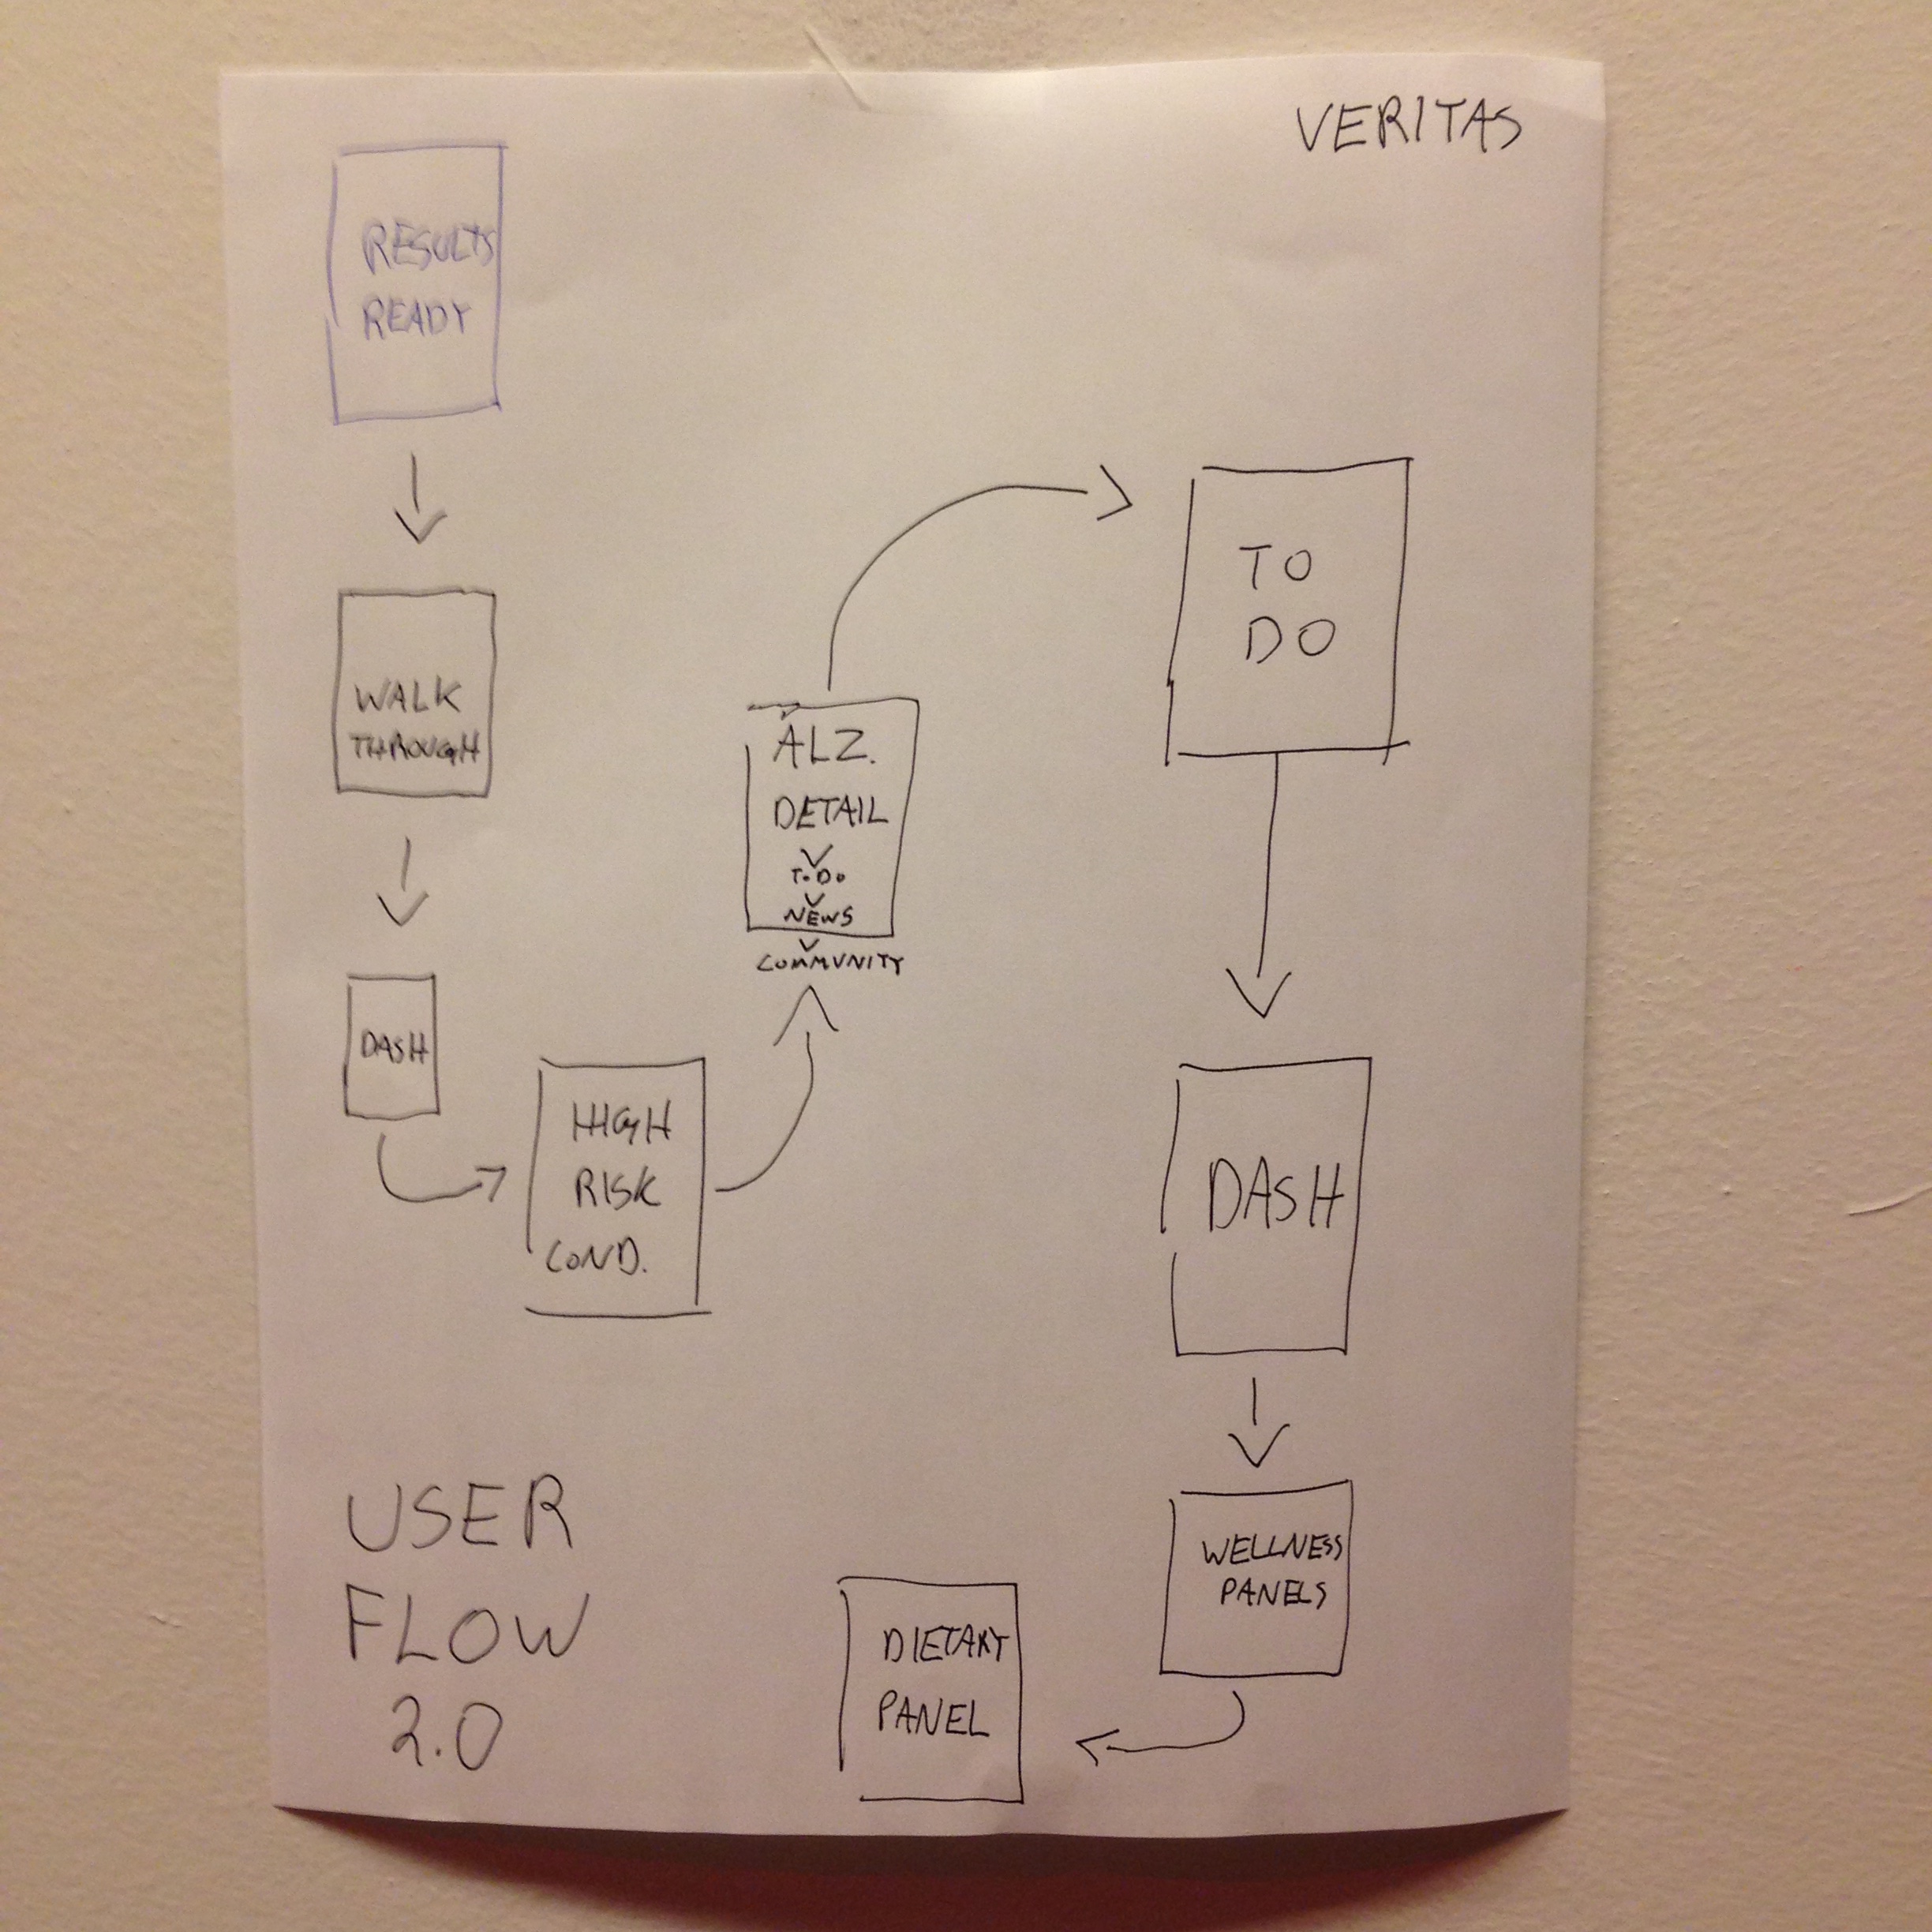 VERITAS
RESULTS
READY
WALK
THROUGH
DASH
HIGH
RISK
COND.
ALZ.
DETAIL
TO DO
NEWS
COMMUNITY
TO
DO
DASH
WELLNESS
PANELS
DIETARY
PANEL
USER
FLOW
2.0